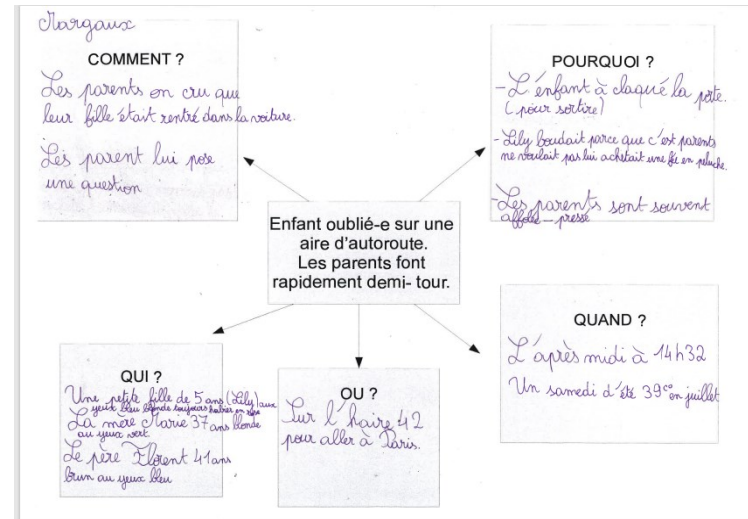 Margaux
COMMENT ?
Les parents on cru que
leur fille était rentré dans la voiture.
Les parent lui pose
une question
POURQUOI ?
- L'enfant à claqué la porte.
(pour sortire)
- Lily boudait parce que c'est parents
ne voulait pas lui achetait une fé en peluche.
- Les parents sont souvent
affolé - pressé
Enfant oublié-e sur une
aire d'autoroute.
Les parents font
rapidement demi- tour.
QUI ?
Une petite fille de 5 ans (Lily) aux
yeux bleu blonde toujours habiller en rose
La mère Marie 37 ans blonde
au yeux vert.
Le père Florent 41 ans
brun au yeux bleu
OU ?
Sur l'haire 42
pour aller à Paris.
QUAND ?
L'après midi à 14h32
Un samedi d'été 39c° en juillet